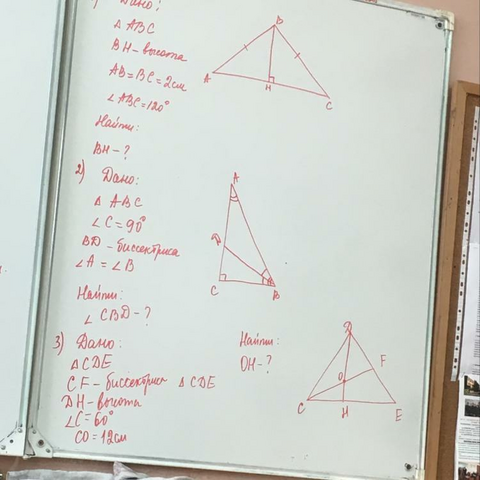 1) Дано:
△ ABC
BH - высота
AB = BC = 2см
∠ ABC = 120°
Найти:
BH - ?
B
A
H
C
2) Дано:
△ ABC
∠C = 90°
BD - биссектриса
∠A = ∠B
Найти:
∠ CBD - ?
A
D
C
B
3) Дано:
△CDE
CF - биссектриса △ CDE
DH - высота
∠C = 60°
CO = 12см
Найти:
OH - ?
D
F
O
C
H
E